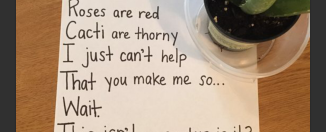 Roses are red
Cacti are thorny
I just can't help
That you make me so...
Wait.
This isn't